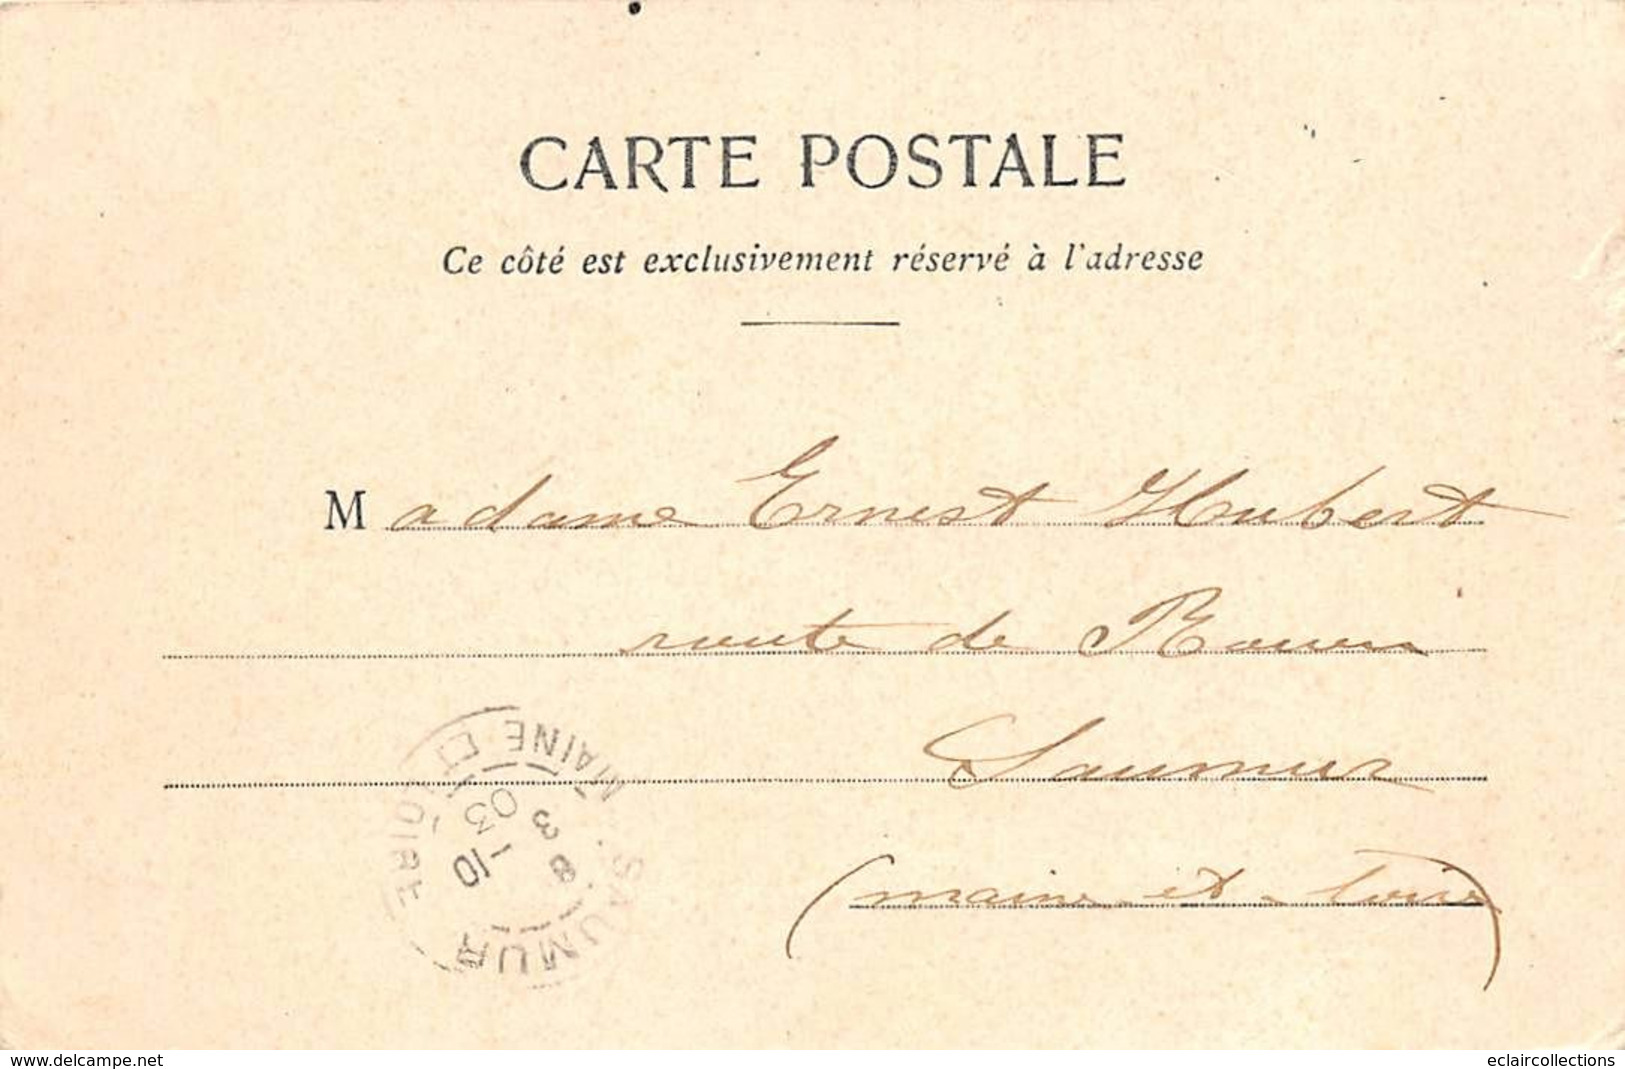 CARTE POSTALE
Ce côté est exclusivement réservé à l'adresse
Madame Ernest Hubert
route de Rouen
Saumur
(maine et Loire)
SAUMUR MAINE ET LOIRE
8
3
-10
03
www.delcampe.net
eclaircollections